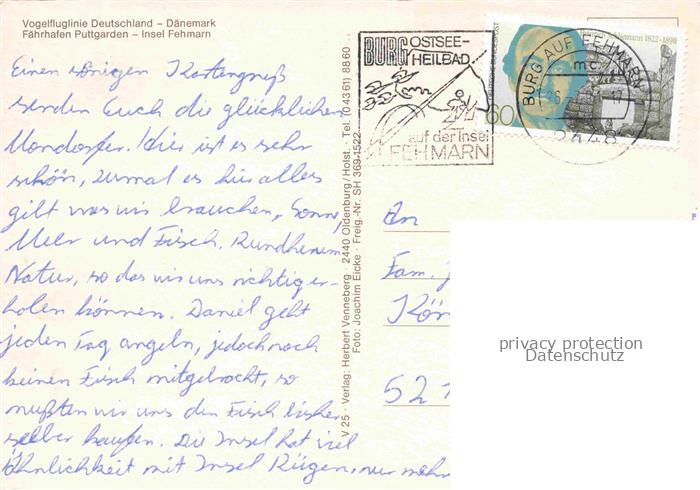 Vogelfluglinie Deutschland – Dänemark
Fährhafen Puttgarden – Insel Fehmarn
Einen sonnigen Kartengruß
senden Euch die glücklichen
Mondorfer. Hier ist es sehr
schön, zumal es hier alles
gibt was wir brauchen, Sonne,
Meer und Fisch. Rundherum
Natur, so das wir uns richtig er-
holen können. Daniel geht
jeden Tag angeln, jedoch noch
keinen Fisch mitgebracht, so
mußten wir uns den Fisch bisher
selber kaufen. Die Insel hat viel
Ähnlichkeit mit Insel Rügen, nur mehr
V 25 · Verlag: Herbert Venneberg · 2440 Oldenburg/Holst. · Tel. (04361) 8860
Foto: Joachim Eicke · Freig.-Nr. SH 369-1522
BURG OSTSEE-
HEILBAD
auf der Insel
FEHMARN
60
1822-1890
BURG AUF FEHMARN
mc
2448
An
Fam.
Kön
52
privacy protection
Datenschutz